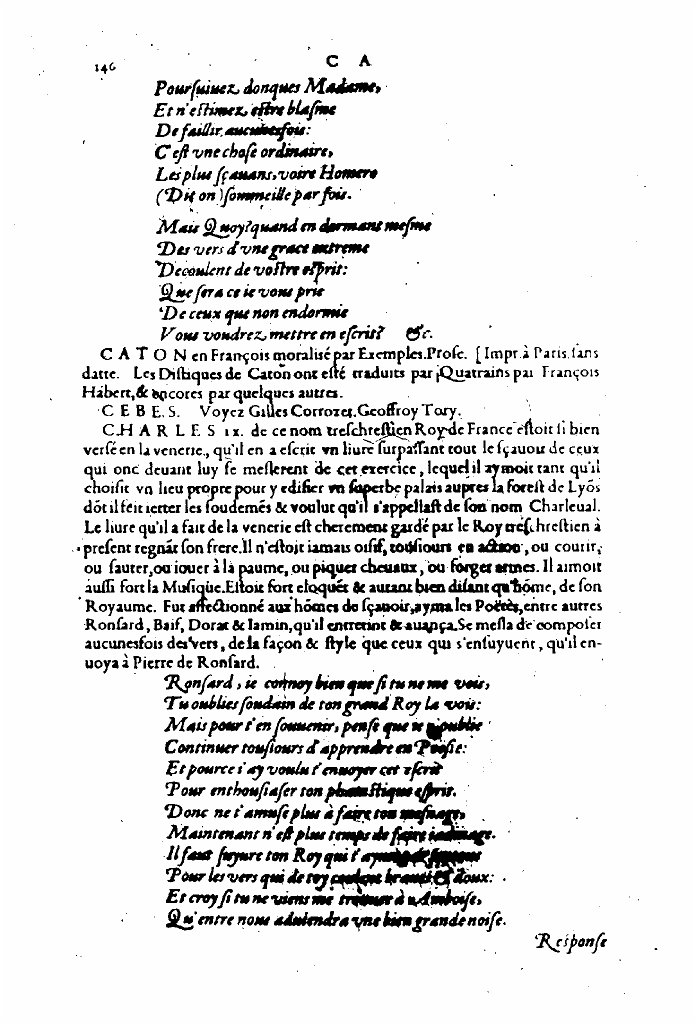 146
C A
Pourſuiuez donques Madame,
Et n'eſtimez eſtre blaſme
De faillir aucunesfois:
C'eſt vne choſe ordinaire,
Les plus ſçauans, voire Homere
(Dit on) ſommeille par fois.
Mais Quoy? quand en dormant meſme
Des vers d'vne grace extreme
Decoulent de voſtre eſprit:
Que ſera ce ie vous prie
De ceux que non endormie
Vous voudrez mettre en eſcrit? &c.
CATON en François moraliſé par Exemples. Proſe. [Impr. à Paris. ſans
datte. Les Diſtiques de Caton ont eſté traduits par Quatrains par François
Habert, & encores par quelques autres.
CEBES. Voyez Gilles Corrozet. Geoffroy Tory.
CHARLES IX. de ce nom treſchreſtien Roy de France eſtoit ſi bien
verſé en la venerie, qu'il en a eſcrit vn liure ſurpaſſant tout le ſçauoir de ceux
qui onc deuant luy ſe meſlerent de cet exercice, lequel il aymoit tant qu'il
choiſit vn lieu propre pour y edifier vn ſuperbe palais aupres la foreſt de Lyõs
dõt il feit ietter les foudemẽs & voulut qu'il s'appellaſt de ſon nom Charleual.
Le liure qu'il a fait de la venerie eſt cherement gardé par le Roy treſchreſtien à
preſent regnãt ſon frere. Il n'eſtoit iamais oiſif, touſiours en action, ou courir,
ou ſauter, ou iouer à la paume, ou piquer cheuaux, ou forger armes. Il aimoit
auſſi fort la Muſique. Eſtoit fort eloquẽt & autant bien diſant qu'hõme, de ſon
Royaume. Fut affectionné aux hõmes de ſçauoir, ayma les Poëtes, entre autres
Ronſard, Baif, Dorat & Iamin, qu'il entretint & auança. Se meſla de compoſer
aucunesfois des vers, de la façon & ſtyle que ceux qui s'enſuyuent, qu'il en-
uoya à Pierre de Ronſard.
Ronſard, ie connoy bien que ſi tu ne me vois,
Tu oublies ſoudain de ton grand Roy la voix:
Mais pour t'en ſouuenir, penſe que ie n'oublie
Continuer touſiours d'apprendre en Poëſie:
Et pource i'ay voulu t'enuoyer cet eſcrit
Pour enthouſiaſer ton phantaſtique eſprit.
Donc ne t'amuſe plus à faire ton meſnage,
Maintenant n'eſt plus temps de faire iardinage.
Il faut ſuyure ton Roy qui t'ayme
Pour les vers qui de toy doux:
Et croy ſi tu ne viens me trouuer à Amboiſe,
Qu'entre nous aduiendra vne bien grande noiſe.
Reſponſe